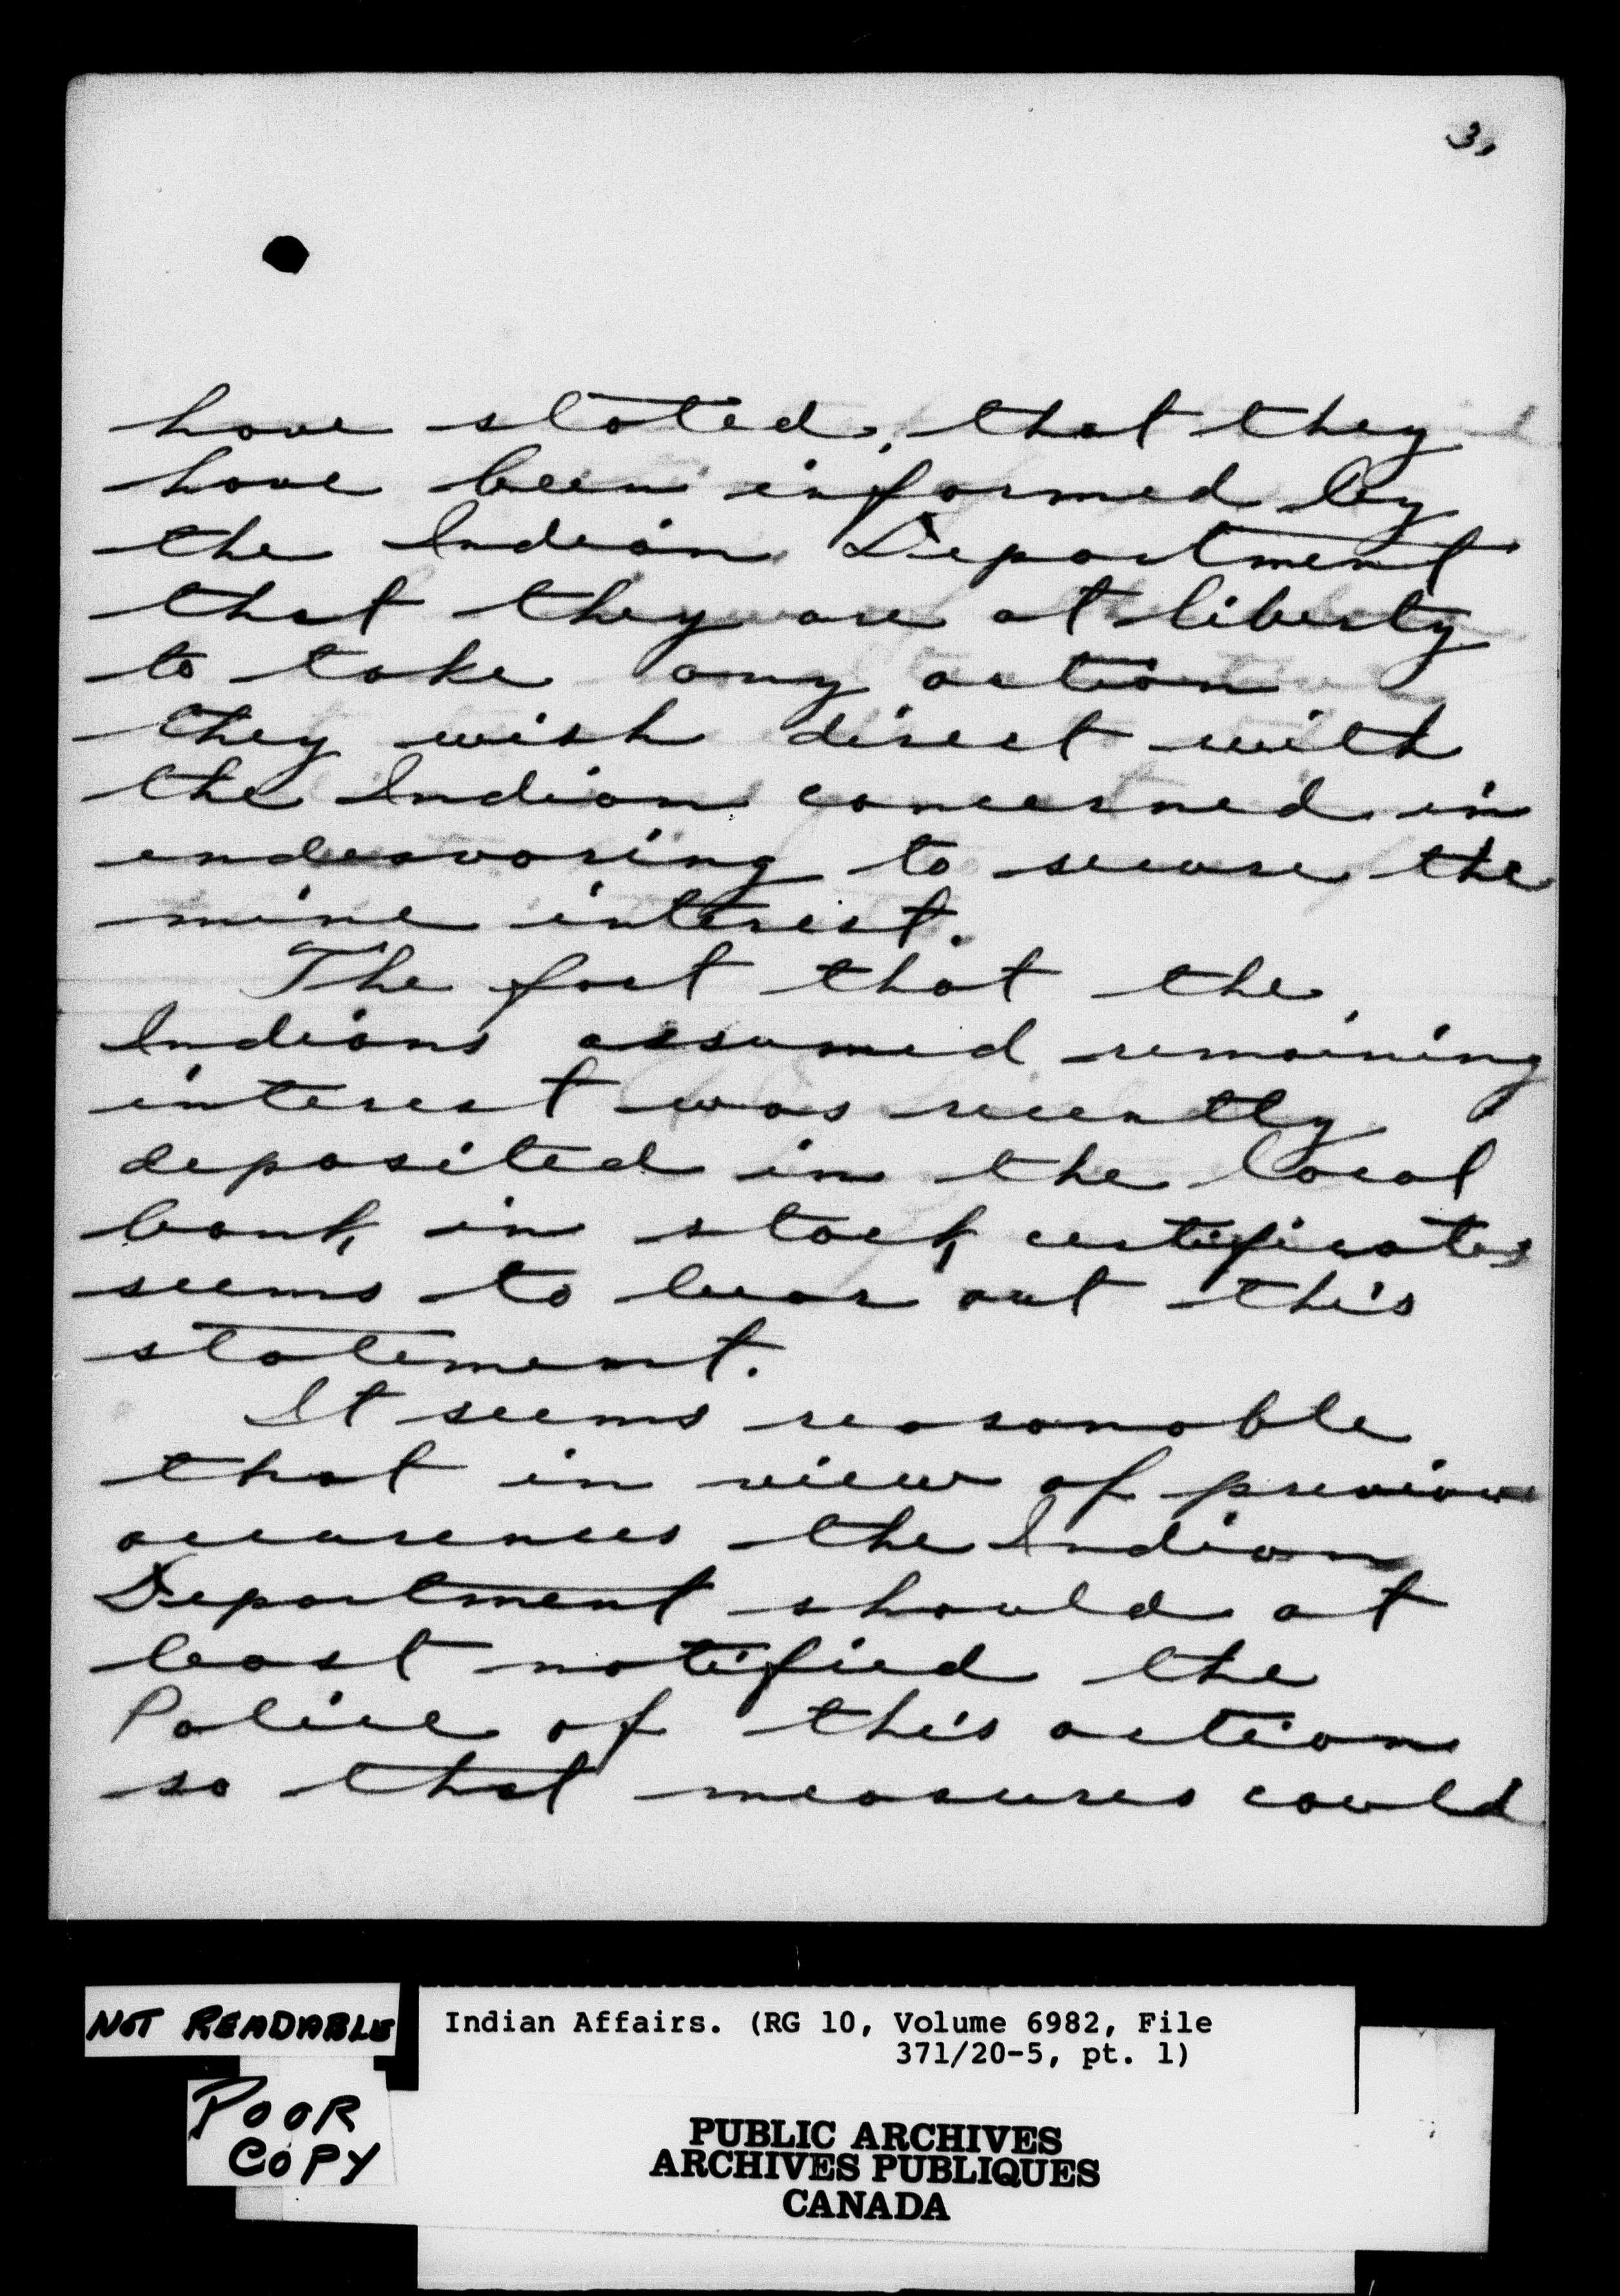 3,
have stated, that they
have been informed by
the Indian Department
that they are at liberty
to take any action
they wish direct with
the Indian concerned in
endeavoring to secure the
mine interest.
The fact that the
Indians assumed remaining
interest was recently
deposited in the local
bank in stock certificates
seems to bear out this
statement.
It seems reasonable
that in view of previous
occurences the Indian
Department should at
least notified the
Police of this action
so that measures could
NOT READABLE
POOR
COPY
Indian Affairs. (RG 10, Volume 6982, File
371/20-5, pt. 1)
PUBLIC ARCHIVES
ARCHIVES PUBLIQUES
CANADA